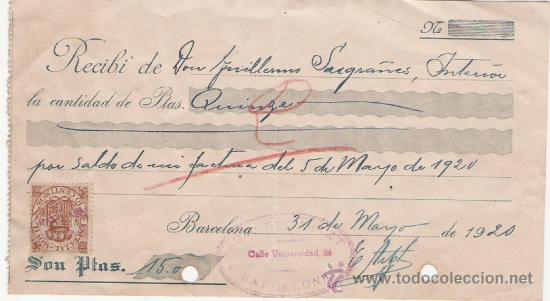 Nº
Recibí de Don Guillermo Sasgrañes, Interior
la cantidad de Ptas. Quinze
por saldo de mi factura del 5 de Mayo de 1920
Barcelona 31 de Mayo de 1920
Calle Universidad,
BARCELONA
Son Ptas. 15.0
todocoleccion.net